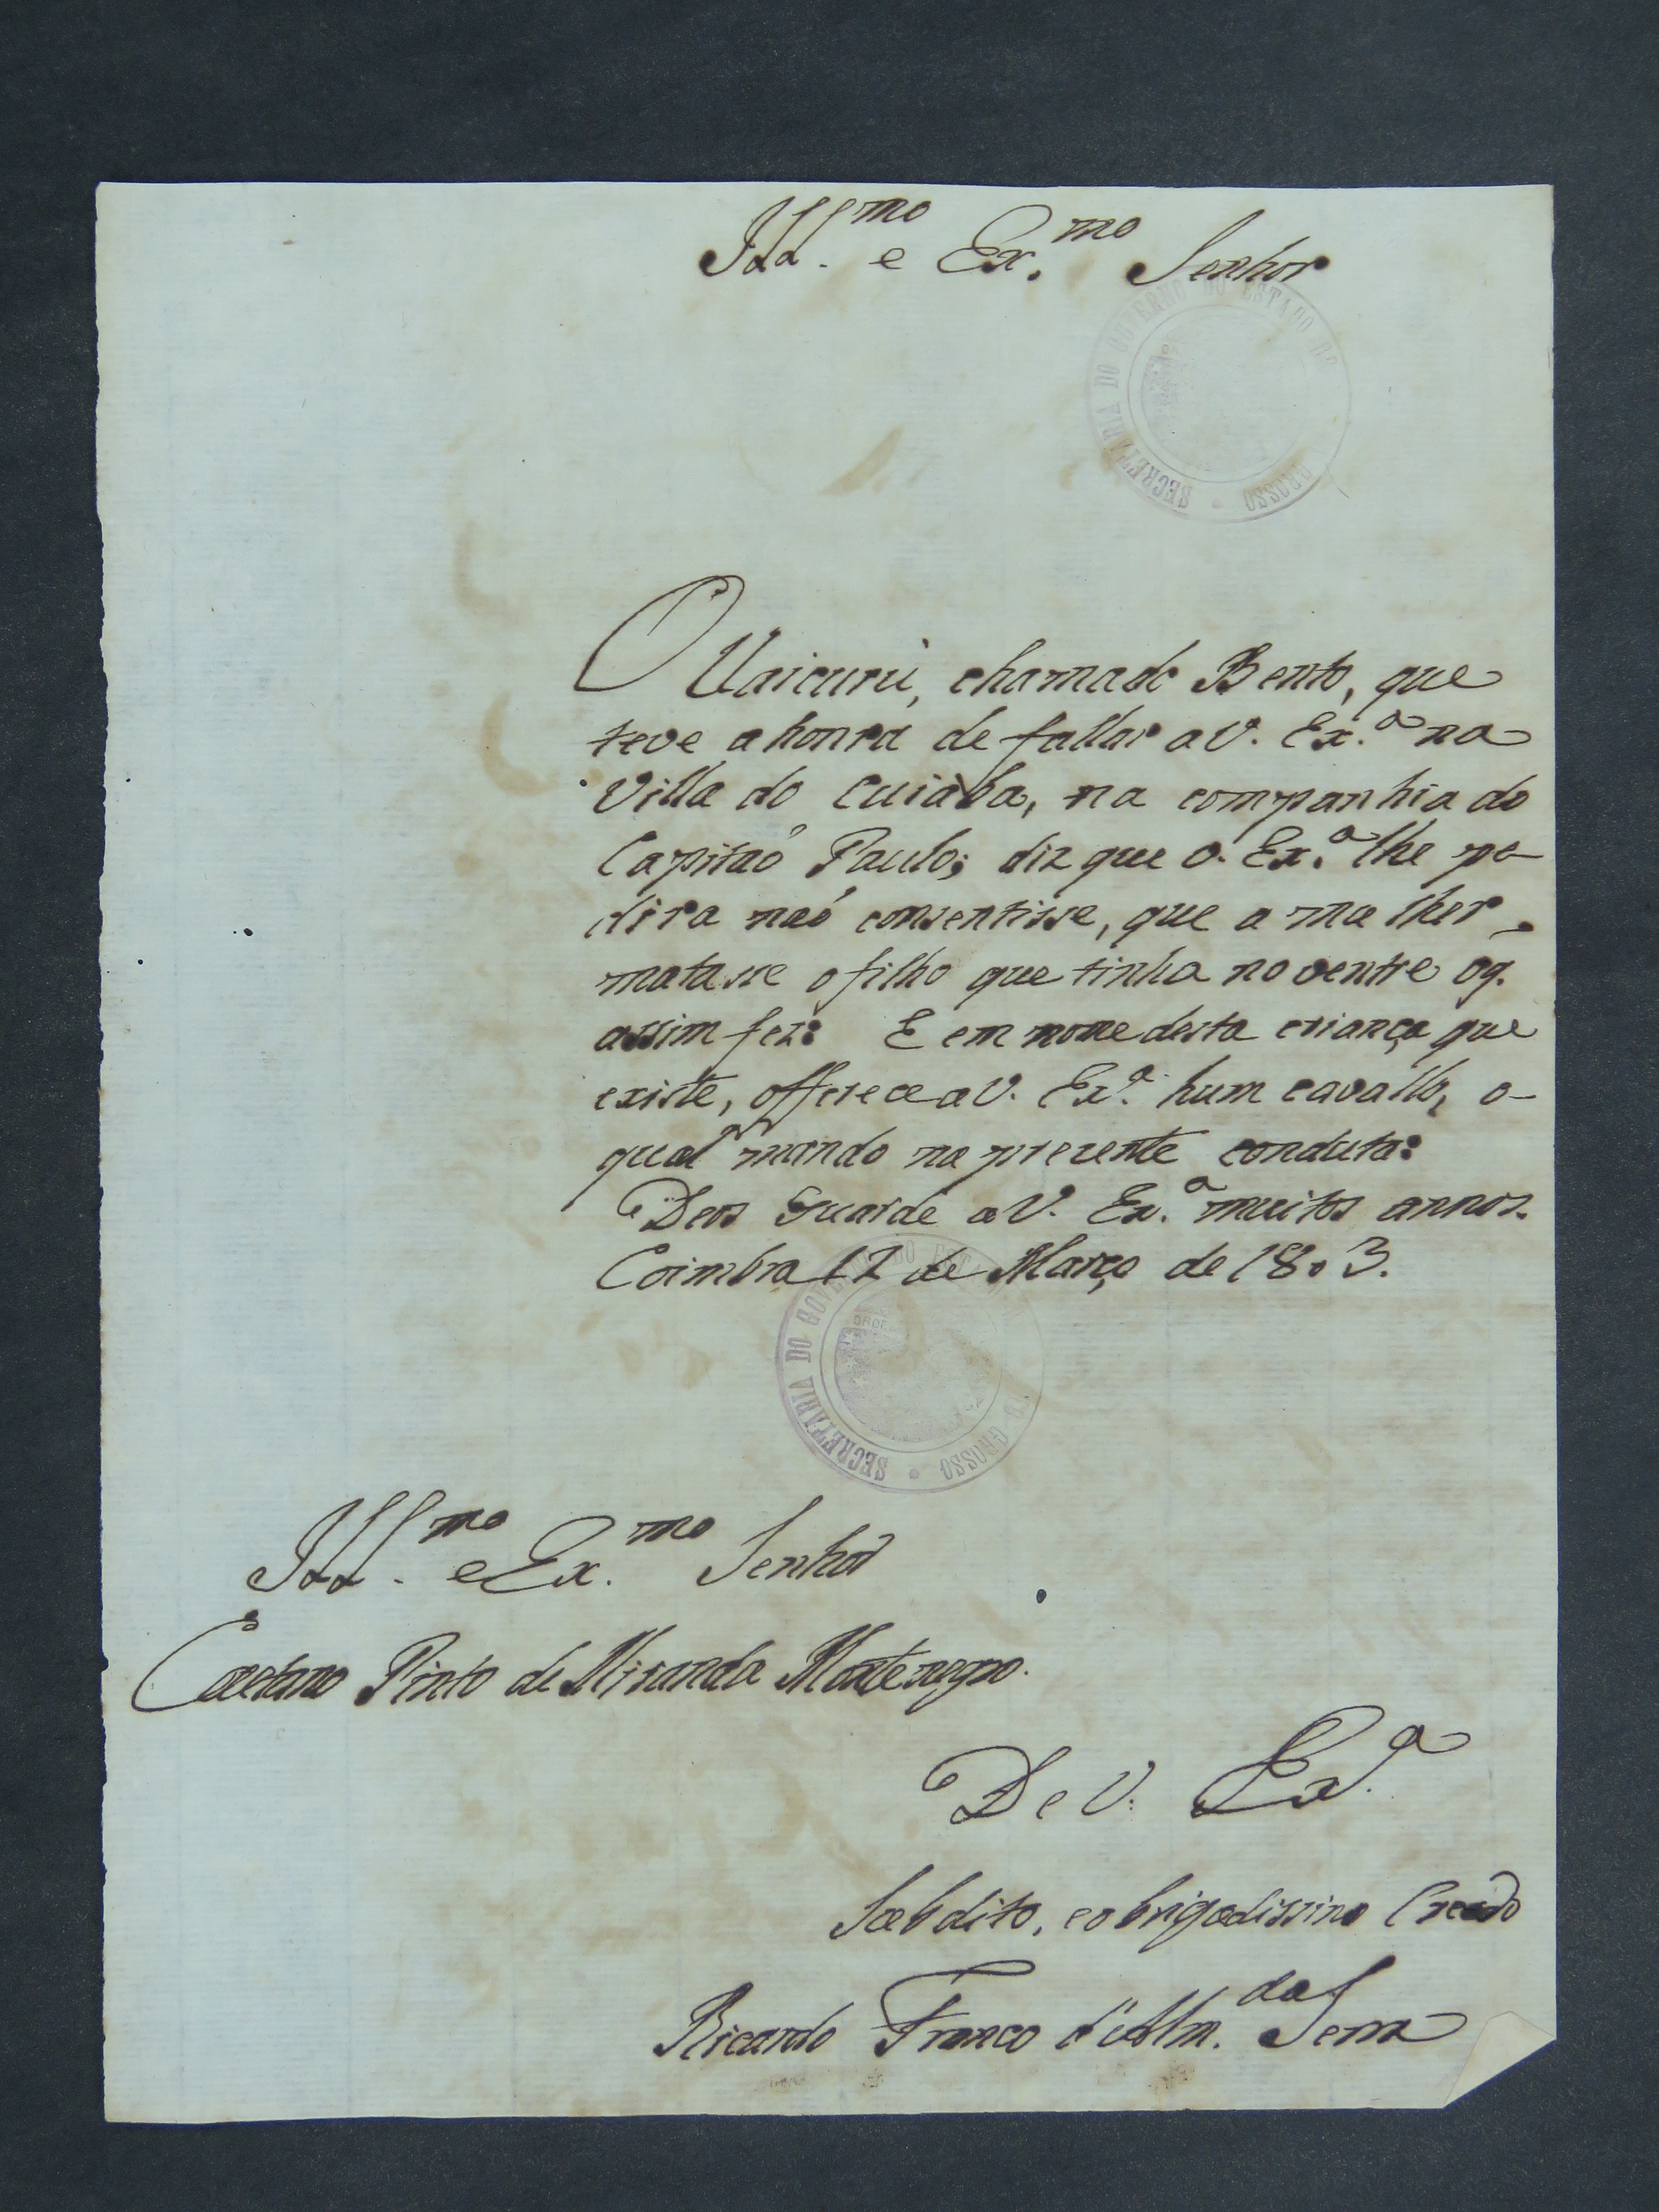 Ill.mo e Ex.mo Senhor
SECRETARIA DO GOVERNO DO ESTADO DE GROSSO
O Uaicurù, chamado Bento, que
teve a honra de fallar a V. Ex.a na
Villa do Cuiàba, na companhia do
Capitaõ Paulo; diz que V. Ex.a lhe pe-
dira naõ consentisse, que a mulher
matasse o filho que tinha no ventre o q.
assim fez: E em nome desta criança que
existe, offerece a V. Ex.a hum cavallo, o-
qual mando na prezente conduta:
Deos Guarde a V. Ex.a muitos annos.
Coimbra 12 de Março de 1803.
SECRETARIA DO GOVERNO DO GROSSO
Ill.mo e Ex.mo Senhor
Caetano Pinto de Miranda Montenegro.
De V. Ex.a
Subdito, e obrigadissimo Creado
Ricardo Franco d'Alm.da Serra